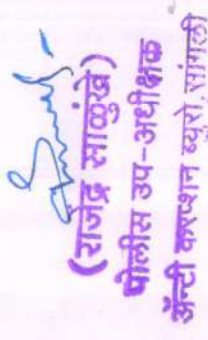 (राजेंद्र साळुंखे)
पोलीस उप-अधीक्षक
ॲन्टी करप्शन ब्युरो, सांगली